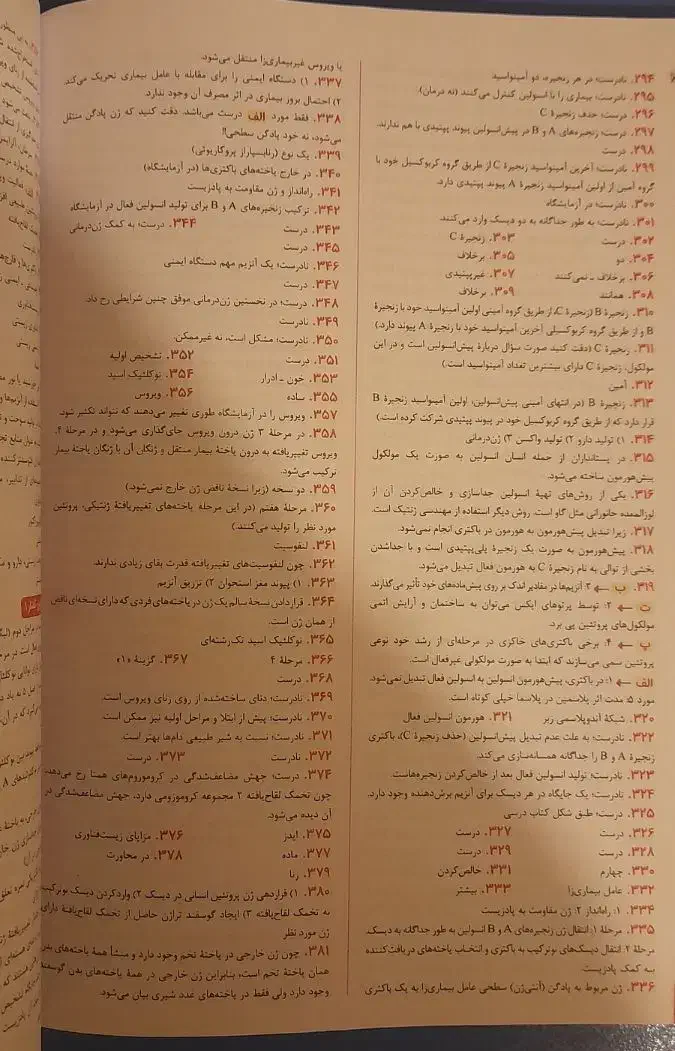 ۲۹۴. نادرست؛ در هر زنجیره، دو آمینواسید
۲۹۵. نادرست؛ بیماری را با انسولین کنترل می‌کنند (نه درمان)
۲۹۶. درست؛ حذف زنجیرهٔ C
۲۹۷. نادرست؛ زنجیره‌های A و B در پیش‌انسولین پیوند پپتیدی با هم ندارند.
۲۹۸. درست
۲۹۹. نادرست؛ آخرین آمینواسید زنجیرهٔ C از طریق گروه کربوکسیل خود با
گروه آمین از اولین آمینواسید زنجیرهٔ A پیوند پپتیدی دارد.
۳۰۰. نادرست؛ در آزمایشگاه
۳۰۱. نادرست؛ به طور جداگانه به دو دیسک وارد می‌کنند.
۳۰۲. درست ۳۰۳. زنجیرهٔ C
۳۰۴. دو ۳۰۵. برخلاف
۳۰۶. برخلاف ـ نمی‌کنند ۳۰۷. غیرپپتیدی
۳۰۸. همانند ۳۰۹. برخلاف
۳۱۰. زنجیرهٔ B (زنجیرهٔ C، از طریق گروه آمینی اولین آمینواسید خود با زنجیرهٔ
B و از طریق گروه کربوکسیلی آخرین آمینواسید خود با زنجیرهٔ A پیوند دارد.)
۳۱۱. زنجیرهٔ C (دقت کنید صورت سؤال دربارهٔ پیش‌انسولین است و در این
مولکول، زنجیرهٔ C دارای بیشترین تعداد آمینواسید است.)
۳۱۲. آمین
۳۱۳. زنجیرهٔ B (در انتهای آمینی پیش‌انسولین، اولین آمینواسید زنجیرهٔ B
قرار دارد که از طریق گروه کربوکسیل خود در پیوند پپتیدی شرکت کرده است.)
۳۱۴. ۱) تولید دارو ۲) تولید واکسن ۳) ژن‌درمانی
۳۱۵. در پستانداران از جمله انسان انسولین به صورت یک مولکول
پیش‌هورمون ساخته می‌شود.
۳۱۶. یکی از روش‌های تهیهٔ انسولین جداسازی و خالص‌کردن آن از
لوزالمعده جانورانی مثل گاو است. روش دیگر استفاده از مهندسی ژنتیک است.
۳۱۷. زیرا تبدیل پیش‌هورمون به هورمون در باکتری انجام نمی‌شود.
۳۱۸. پیش‌هورمون به صورت یک زنجیرهٔ پلی‌پپتیدی است و با جداشدن
بخشی از توالی به نام زنجیرهٔ C به هورمون فعال تبدیل می‌شود.
۳۱۹. ب ← ۳: آنزیم‌ها در مقادیر اندک بر روی پیش‌ماده‌های خود تأثیر می‌گذارند.
ت ← ۲: توسط پرتوهای ایکس می‌توان به ساختمان و آرایش اتمی
مولکول‌های پروتئین پی برد.
پ ← ۴: برخی باکتری‌های خاکزی در مرحله‌ای از رشد خود نوعی
پروتئین سمی می‌سازند که ابتدا به صورت مولکولی غیرفعال است.
الف ← ۱: در باکتری، پیش‌هورمون انسولین به انسولین فعال تبدیل نمی‌شود.
مورد ۵: مدت اثر پلاسمین در پلاسما خیلی کوتاه است.
۳۲۰. شبکهٔ آندوپلاسمی زبر ۳۲۱. هورمون انسولین فعال
۳۲۲. نادرست؛ به علت عدم تبدیل پیش‌انسولین (حذف زنجیرهٔ C)، باکتری
زنجیرهٔ A و B را جداگانه همسانه‌سازی می‌کند.
۳۲۳. نادرست؛ تولید انسولین فعال بعد از خالص‌کردن زنجیره‌هاست.
۳۲۴. نادرست؛ یک جایگاه در هر دیسک برای آنزیم برش‌دهنده وجود دارد.
۳۲۵. درست؛ طبق شکل کتاب درسی
۳۲۶. درست ۳۲۷. درست
۳۲۸. درست ۳۲۹. درست
۳۳۰. چهارم ۳۳۱. خالص‌کردن
۳۳۲. عامل بیماری‌زا ۳۳۳. بیشتر
۳۳۴. ۱: راه‌انداز ۲: ژن مقاومت به پادزیست
۳۳۵. مرحلهٔ ۱: انتقال ژن زنجیره‌های A و B انسولین به طور جداگانه به دیسک.
مرحلهٔ ۲: انتقال دیسک‌های نوترکیب به باکتری و انتخاب یاخته‌های دریافت‌کننده
به کمک پادزیست.
۳۳۶. ژن مربوط به پادگن (آنتی‌ژن) سطحی عامل بیماری‌زا به یک باکتری
یا ویروس غیربیماری‌زا منتقل می‌شود.
۳۳۷. ۱) دستگاه ایمنی را برای مقابله با عامل بیماری تحریک می‌کند.
۲) احتمال بروز بیماری در اثر مصرف آن وجود ندارد.
۳۳۸. فقط مورد الف درست می‌باشد. دقت کنید که ژن پادگن منتقل
می‌شود، نه خود پادگن سطحی!
۳۳۹. یک نوع (رنابسپاراز پروکاریوتی)
۳۴۰. در خارج یاخته‌های باکتری‌ها (در آزمایشگاه)
۳۴۱. راه‌انداز و ژن مقاومت به پادزیست
۳۴۲. ترکیب زنجیره‌های A و B برای تولید انسولین فعال در آزمایشگاه
۳۴۳. درست ۳۴۴. درست؛ به کمک ژن‌درمانی
۳۴۵. درست
۳۴۶. نادرست؛ یک آنزیم مهم دستگاه ایمنی
۳۴۷. درست
۳۴۸. درست؛ در نخستین ژن‌درمانی موفق چنین شرایطی رخ داد.
۳۴۹. نادرست
۳۵۰. نادرست؛ مشکل است، نه غیرممکن.
۳۵۱. درست ۳۵۲. تشخیص اولیه
۳۵۳. خون ـ ادرار ۳۵۴. نوکلئیک اسید
۳۵۵. ساده ۳۵۶. ویروس
۳۵۷. ویروس را در آزمایشگاه طوری تغییر می‌دهند که نتواند تکثیر شود.
۳۵۸. در مرحلهٔ ۳ ژن درون ویروس جای‌گذاری می‌شود و در مرحلهٔ ۴،
ویروس تغییریافته به درون یاختهٔ بیمار منتقل و ژنگان آن با ژنگان یاختهٔ بیمار
ترکیب می‌شود.
۳۵۹. دو نسخه (زیرا نسخهٔ ناقص ژن خارج نمی‌شود.)
۳۶۰. مرحلهٔ هفتم (در این مرحله یاخته‌های تغییریافتهٔ ژنتیکی، پروتئین
مورد نظر را تولید می‌کنند.)
۳۶۱. لنفوسیت
۳۶۲. چون لنفوسیت‌های تغییریافته قدرت بقای زیادی ندارند.
۳۶۳. ۱) پیوند مغز استخوان ۲) تزریق آنزیم
۳۶۴. قراردادن نسخهٔ سالم یک ژن در یاخته‌های فردی که دارای نسخه‌ای ناقص
از همان ژن است.
۳۶۵. نوکلئیک اسید تک‌رشته‌ای
۳۶۶. مرحلهٔ ۴ ۳۶۷. گزینهٔ «۱»
۳۶۸. درست
۳۶۹. نادرست؛ دنای ساخته‌شده از روی رنای ویروس است.
۳۷۰. نادرست؛ پیش از ابتلا و مراحل اولیه نیز ممکن است.
۳۷۱. نادرست؛ نسبت به شیر طبیعی دام‌ها بهتر است.
۳۷۲. نادرست ۳۷۳. درست
۳۷۴. درست؛ جهش مضاعف‌شدگی در کروموزوم‌های همتا رخ می‌دهد،
چون تخمک لقاح‌یافته ۲ مجموعه کروموزومی دارد، جهش مضاعف‌شدگی در
آن دیده می‌شود.
۳۷۵. ایدز ۳۷۶. مزایای زیست‌فناوری
۳۷۷. ماده ۳۷۸. در مجاورت
۳۷۹. رنا
۳۸۰. ۱) قراردهی ژن پروتئین انسانی در دیسک ۲) واردکردن دیسک نوترکیب
به تخمک لقاح‌یافته ۳) ایجاد گوسفند تراژن حاصل از تخمک لقاح‌یافتهٔ دارای
ژن مورد نظر
۳۸۱. چون ژن خارجی در یاختهٔ تخم وجود دارد و منشأ همهٔ یاخته‌های بدن
همان یاختهٔ تخم است، بنابراین ژن خارجی در همهٔ یاخته‌های بدن گوسفند
وجود دارد ولی فقط در یاخته‌های غدد شیری بیان می‌شود.